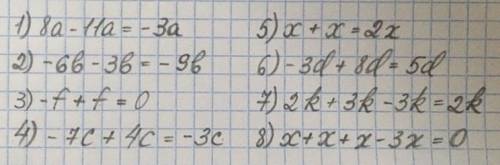 1) 8a - 11a = -3a
2) -6b - 3b = -9b
3) -f + f = 0
4) -7c + 4c = -3c
5) x + x = 2x
6) -3d + 8d = 5d
7) 2k + 3k - 3k = 2k
8) x + x + x - 3x = 0